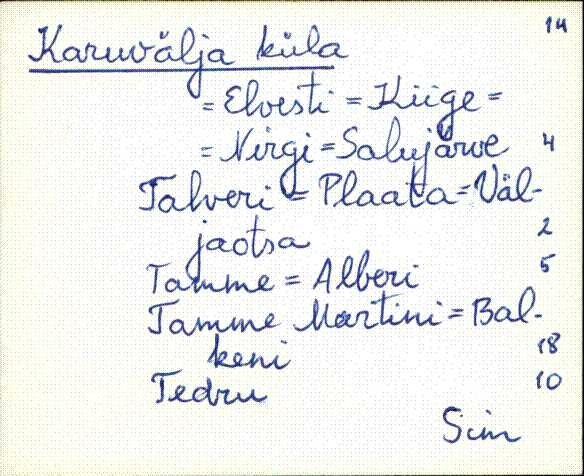 14
Karuvälja küla
= Elvesti = Kiige =
= Nirgi = Salujärve 4
Talveri = Plaata = Väl-
jaotsa 2
Tamme = Alberi 5
Tamme Martini = Bal-
keni 18
Tedru 10
Sim